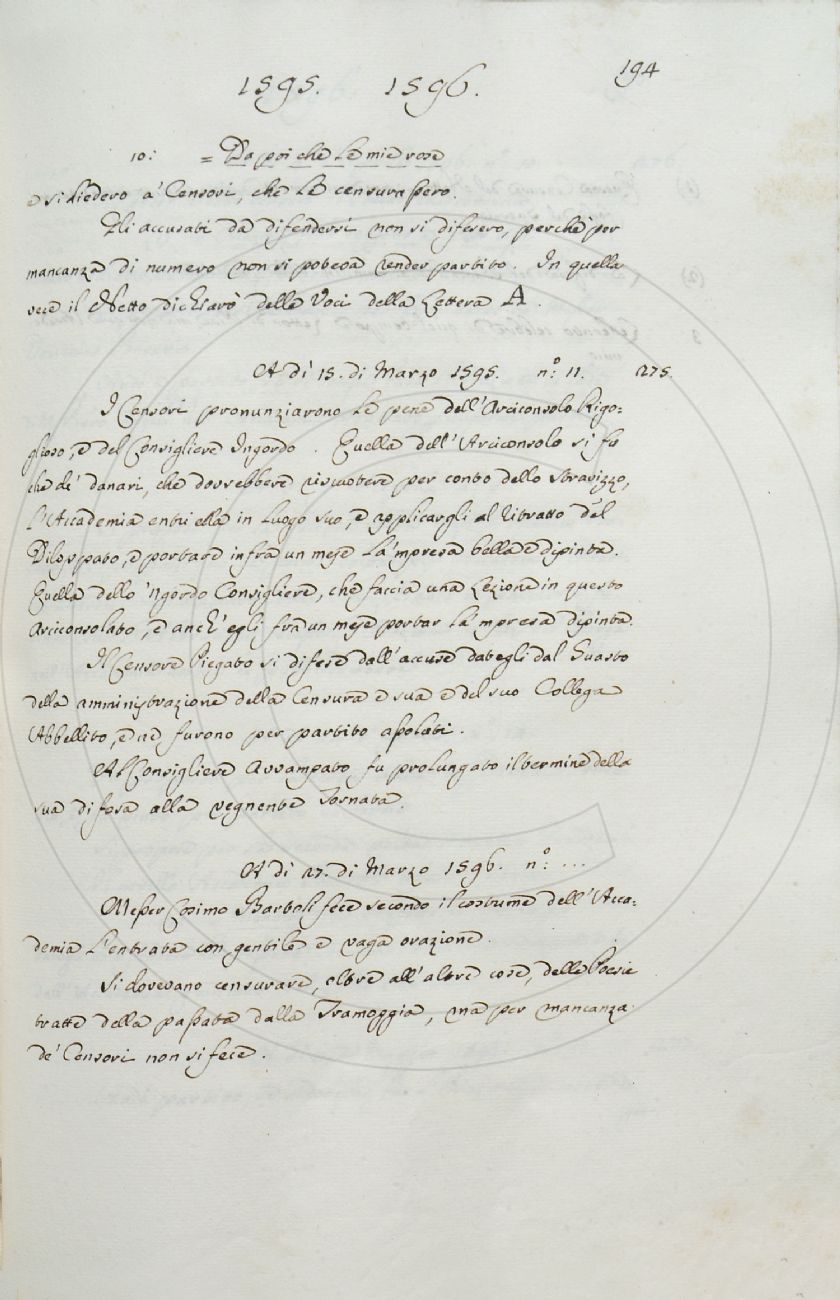 194
1595. 1596.
10: = Da poi che Le mie rose
e si diedero a' Censori, che Le censurassero.
Gli accusati da difendersi non si difesero, perchè per
mancanza di numero non si poteva render partito. In quella
vece il Netto dichiarò delle Voci della Lettera A.
A dì 15. di Marzo 1595. n.º 11. 275.
I Censori pronunziarono Le pene dell'Arciconsolo Rigo=
glioso, e del Consigliere Ingordo. Quella dell'Arciconsolo si fu
che de' danari, che dovrebbere riscuotere per conto dello stravizzo,
L'Accademia entri ella in Luogo suo, e applicargli al ritratto del
Diloppato, e portare infra un mese La 'mpresa bella e dipinta.
Quella dello 'ngordo Consigliere, che faccia una Lezione in questo
Arciconsolato, e anch'egli fra un mese portar La 'mpresa dipinta.
Il Censore Piegato si difese dall'accuse dategli dal Guasto
della amministrazione della Censura e sua e del suo Collega
Abbellito, e ne furono per partito assoluti.
Al Consigliere Avvampato fu prolungato il termine della
sua difesa alla vegnente Tornata.
A dì 27. di Marzo 1596. n.º ...
Messer Cosimo Bartoli fece secondo il costume dell'Acca=
demia L'entrata con gentile e vaga orazione.
Si dovevano censurare, oltre all'altre cose, delle Poesie
tratte della passata dalla Tramoggia, ma per mancanza
de' Censori non si fece.